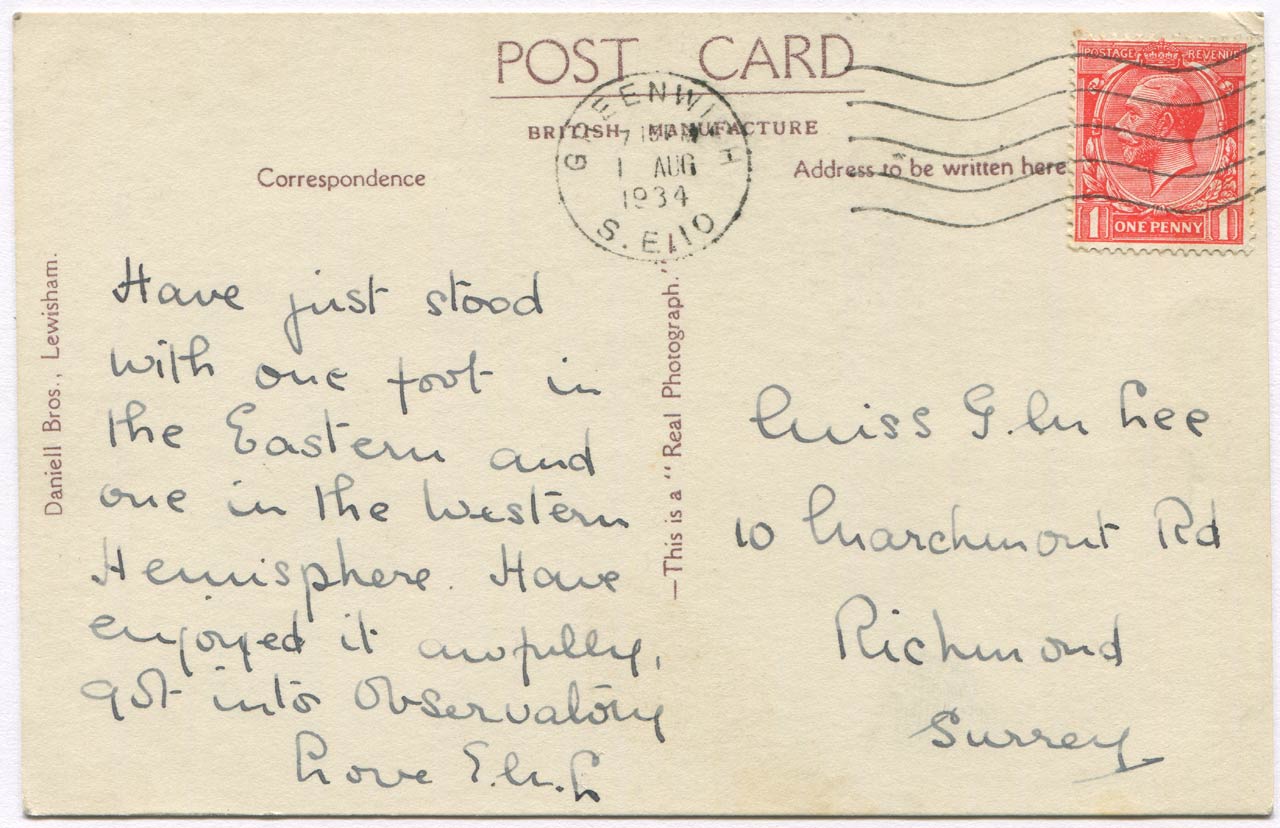 POST CARD
BRITISH MANUFACTURE
Correspondence
Address to be written here
GREENWICH
7 15 PM
1 AUG
1934
S.E.10
POSTAGE REVENUE
1 ONE PENNY 1
Daniell Bros., Lewisham.
—This is a "Real Photograph."
Have just stood
with one foot in
the Eastern and
one in the Western
Hemisphere. Have
enjoyed it awfully,
got into Observatory
Love E.M.L
Miss G.M Lee
10 Marchmont Rd
Richmond
Surrey